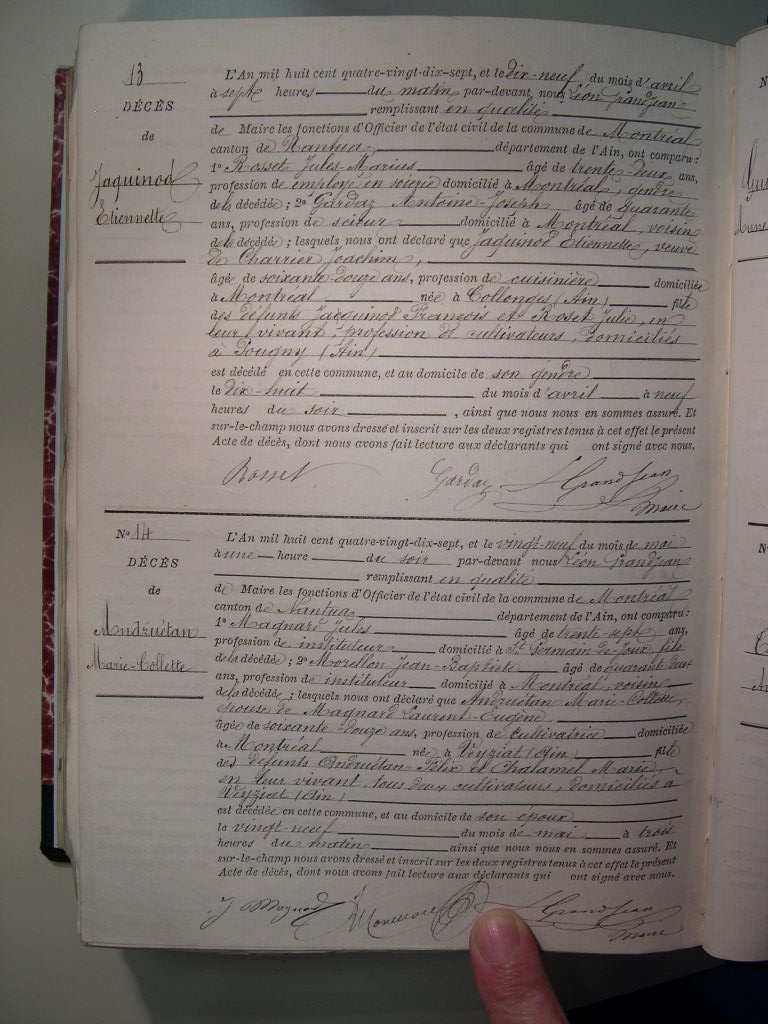 13
DÉCÈS
de
Jaquinod
Etiennette
L'An mil huit cent quatre-vingt-dix-sept, et le dix-neuf du mois d'avril
à sept heures du matin par-devant nous Léon Grandjean
remplissant en qualité
de Maire les fonctions d'Officier de l'état civil de la commune de Montréal
canton de Nantua département de l'Ain, ont comparu:
1° Rosset Jules-Marius âgé de trente deux ans,
profession de employé en soierie domicilié à Montréal, gendre
de la décédée; 2° Gardaz Antoine-Joseph âgé de quarante
ans, profession de scieur domicilié à Montréal, voisin
de la décédée; lesquels nous ont déclaré que Jaquinod Etiennette, veuve
de Charrier Joachim,
âgée de soixante-douze ans, profession de cuisinière domiciliée
à Montréal née à Collonges (Ain) fille
des défunts Jacquinod François et Roset Julie, en
leur vivant, profession de cultivateurs, domiciliés
à Pougny (Ain)
est décédé en cette commune, et au domicile de son gendre
le dix-huit du mois d'avril à neuf
heures du soir, ainsi que nous nous en sommes assuré. Et
sur-le-champ nous avons dressé et inscrit sur les deux registres tenus à cet effet le présent
Acte de décès, dont nous avons fait lecture aux déclarants qui ont signé avec nous.
Rosset Gardaz L Grandjean
maire
N° 14
DÉCÈS
de
Andruétan
Marie-Collette
L'An mil huit cent quatre-vingt-dix-sept, et le vingt-neuf du mois de mai
à une heure du soir par-devant nous Léon Grandjean
remplissant en qualité
de Maire les fonctions d'Officier de l'état civil de la commune de Montréal
canton de Nantua département de l'Ain, ont comparu:
1° Magnard Jules âgé de trente-sept ans,
profession de instituteur domicilié à St Germain de Joux, fils
de la décédée; 2° Morellon Jean-Baptiste âgé de quarante deux
ans, profession de instituteur domicilié à Montréal, voisin
de la décédée; lesquels nous ont déclaré que Andruétan Marie-Collette,
épouse de Magnard Laurent-Eugène
âgée de soixante-douze ans, profession de cultivatrice domiciliée
à Montréal née à Veyziat (Ain) fille
des défunts Andruétan Félix et Chalamel Marie
en leur vivant, tous deux cultivateurs, domiciliés à
Veyziat (Ain)
est décédée en cette commune, et au domicile de son époux
le vingt-neuf du mois de mai à trois
heures du matin ainsi que nous nous en sommes assuré. Et
sur-le-champ nous avons dressé et inscrit sur les deux registres tenus à cet effet le présent
Acte de décès, dont nous avons fait lecture aux déclarants qui ont signé avec nous.
J Magnard L Grandjean
maire